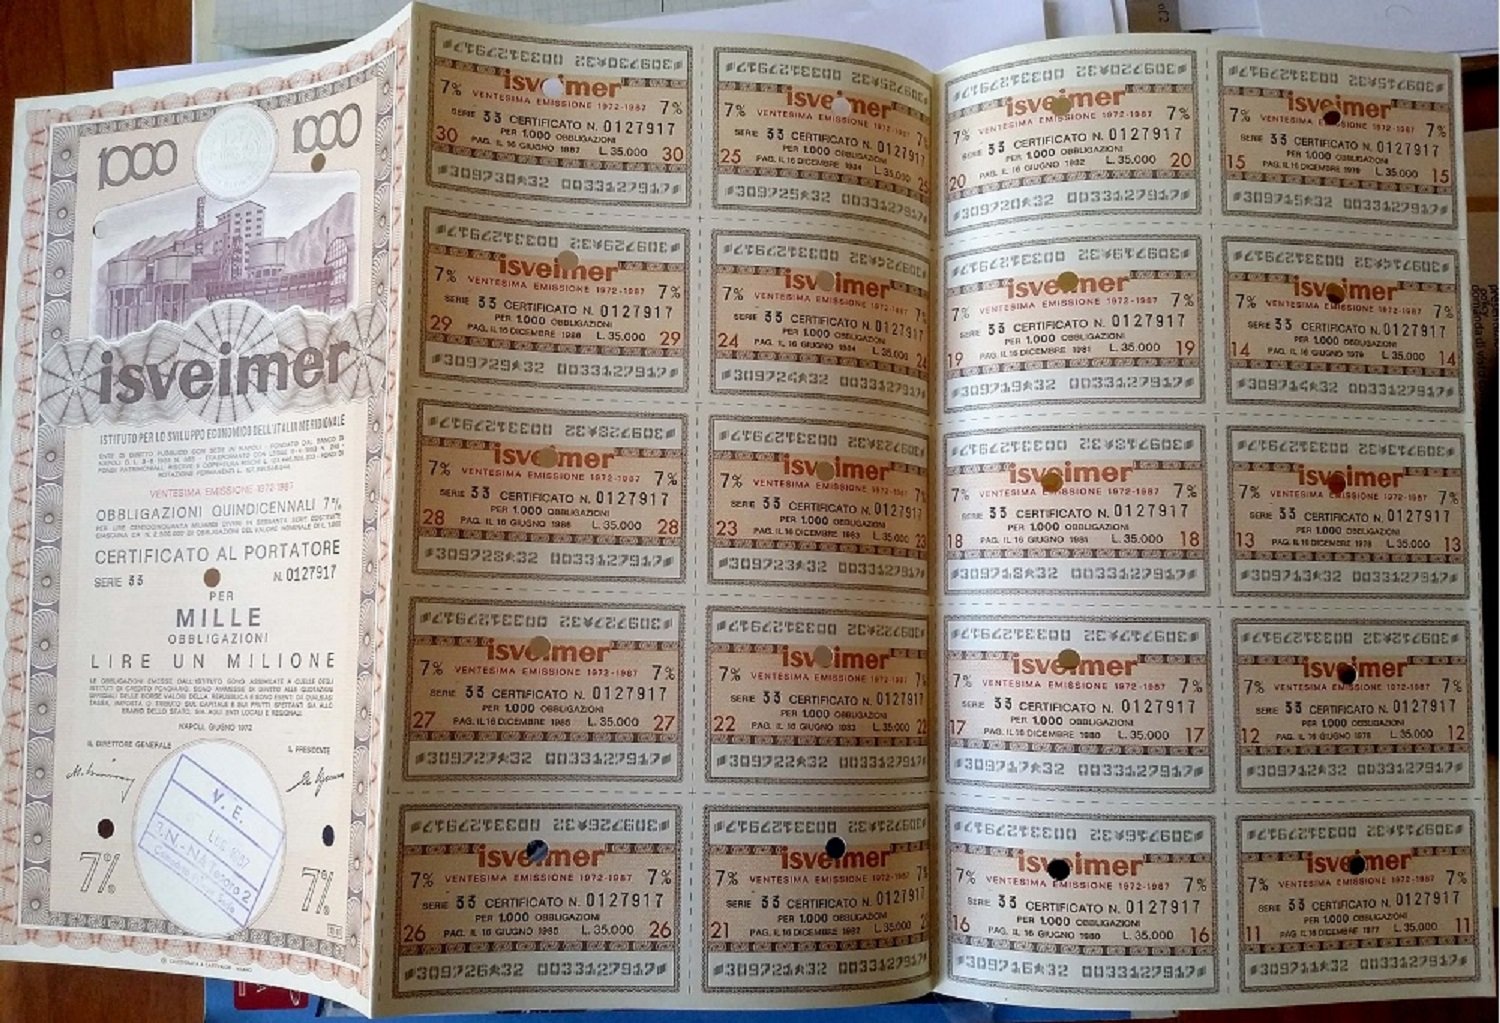 1000 1000
isveimer
ISTITUTO PER LO SVILUPPO ECONOMICO DELL'ITALIA MERIDIONALE
VENTESIMA EMISSIONE 1972-1987
OBBLIGAZIONI QUINDICENNALI 7%
CERTIFICATO AL PORTATORE
SERIE 33 N. 0127917
PER
MILLE
OBBLIGAZIONI
LIRE UN MILIONE
NAPOLI, GIUGNO 1972
IL DIRETTORE GENERALE IL PRESIDENTE
V. E.
7% 7%
#309730*32 0033127917#
isveimer
7% VENTESIMA EMISSIONE 1972-1987 7%
SERIE 33 CERTIFICATO N. 0127917
PER 1.000 OBBLIGAZIONI
30 PAG. IL 16 GIUGNO 1987 L. 35.000 30
#309730*32 0033127917#
#309725*32 0033127917#
isveimer
7% VENTESIMA EMISSIONE 1972-1987 7%
SERIE 33 CERTIFICATO N. 0127917
PER 1.000 OBBLIGAZIONI
25 PAG. IL 16 DICEMBRE 1984 L. 35.000 25
#309725*32 0033127917#
#309720*32 0033127917#
isveimer
7% VENTESIMA EMISSIONE 1972-1987 7%
SERIE 33 CERTIFICATO N. 0127917
PER 1.000 OBBLIGAZIONI
20 PAG. IL 16 GIUGNO 1982 L. 35.000 20
#309720*32 0033127917#
#309715*32 0033127917#
isveimer
7% VENTESIMA EMISSIONE 1972-1987 7%
SERIE 33 CERTIFICATO N. 0127917
PER 1.000 OBBLIGAZIONI
15 PAG. IL 16 DICEMBRE 1979 L. 35.000 15
#309715*32 0033127917#
#309729*32 0033127917#
isveimer
7% VENTESIMA EMISSIONE 1972-1987 7%
SERIE 33 CERTIFICATO N. 0127917
PER 1.000 OBBLIGAZIONI
29 PAG. IL 16 DICEMBRE 1986 L. 35.000 29
#309729*32 0033127917#
#309724*32 0033127917#
isveimer
7% VENTESIMA EMISSIONE 1972-1987 7%
SERIE 33 CERTIFICATO N. 0127917
PER 1.000 OBBLIGAZIONI
24 PAG. IL 16 GIUGNO 1984 L. 35.000 24
#309724*32 0033127917#
#309719*32 0033127917#
isveimer
7% VENTESIMA EMISSIONE 1972-1987 7%
SERIE 33 CERTIFICATO N. 0127917
PER 1.000 OBBLIGAZIONI
19 PAG. IL 16 DICEMBRE 1981 L. 35.000 19
#309719*32 0033127917#
#309714*32 0033127917#
isveimer
7% VENTESIMA EMISSIONE 1972-1987 7%
SERIE 33 CERTIFICATO N. 0127917
PER 1.000 OBBLIGAZIONI
14 PAG. IL 16 GIUGNO 1979 L. 35.000 14
#309714*32 0033127917#
#309728*32 0033127917#
isveimer
7% VENTESIMA EMISSIONE 1972-1987 7%
SERIE 33 CERTIFICATO N. 0127917
PER 1.000 OBBLIGAZIONI
28 PAG. IL 16 GIUGNO 1986 L. 35.000 28
#309728*32 0033127917#
#309723*32 0033127917#
isveimer
7% VENTESIMA EMISSIONE 1972-1987 7%
SERIE 33 CERTIFICATO N. 0127917
PER 1.000 OBBLIGAZIONI
23 PAG. IL 16 DICEMBRE 1983 L. 35.000 23
#309723*32 0033127917#
#309718*32 0033127917#
isveimer
7% VENTESIMA EMISSIONE 1972-1987 7%
SERIE 33 CERTIFICATO N. 0127917
PER 1.000 OBBLIGAZIONI
18 PAG. IL 16 GIUGNO 1981 L. 35.000 18
#309718*32 0033127917#
#309713*32 0033127917#
isveimer
7% VENTESIMA EMISSIONE 1972-1987 7%
SERIE 33 CERTIFICATO N. 0127917
PER 1.000 OBBLIGAZIONI
13 PAG. IL 16 DICEMBRE 1978 L. 35.000 13
#309713*32 0033127917#
#309727*32 0033127917#
isveimer
7% VENTESIMA EMISSIONE 1972-1987 7%
SERIE 33 CERTIFICATO N. 0127917
PER 1.000 OBBLIGAZIONI
27 PAG. IL 16 DICEMBRE 1985 L. 35.000 27
#309727*32 0033127917#
#309722*32 0033127917#
isveimer
7% VENTESIMA EMISSIONE 1972-1987 7%
SERIE 33 CERTIFICATO N. 0127917
PER 1.000 OBBLIGAZIONI
22 PAG. IL 16 GIUGNO 1983 L. 35.000 22
#309722*32 0033127917#
#309717*32 0033127917#
isveimer
7% VENTESIMA EMISSIONE 1972-1987 7%
SERIE 33 CERTIFICATO N. 0127917
PER 1.000 OBBLIGAZIONI
17 PAG. IL 16 DICEMBRE 1980 L. 35.000 17
#309717*32 0033127917#
#309712*32 0033127917#
isveimer
7% VENTESIMA EMISSIONE 1972-1987 7%
SERIE 33 CERTIFICATO N. 0127917
PER 1.000 OBBLIGAZIONI
12 PAG. IL 16 GIUGNO 1978 L. 35.000 12
#309712*32 0033127917#
#309726*32 0033127917#
isveimer
7% VENTESIMA EMISSIONE 1972-1987 7%
SERIE 33 CERTIFICATO N. 0127917
PER 1.000 OBBLIGAZIONI
26 PAG. IL 16 GIUGNO 1985 L. 35.000 26
#309726*32 0033127917#
#309721*32 0033127917#
isveimer
7% VENTESIMA EMISSIONE 1972-1987 7%
SERIE 33 CERTIFICATO N. 0127917
PER 1.000 OBBLIGAZIONI
21 PAG. IL 16 DICEMBRE 1982 L. 35.000
#309721*32 0033127917#
#309716*32 0033127917#
isveimer
7% VENTESIMA EMISSIONE 1972-1987 7%
SERIE 33 CERTIFICATO N. 0127917
PER 1.000 OBBLIGAZIONI
16 PAG. IL 16 GIUGNO 1980 L. 35.000 16
#309716*32 0033127917#
#309711*32 0033127917#
isveimer
7% VENTESIMA EMISSIONE 1972-1987 7%
SERIE 33 CERTIFICATO N. 0127917
PER 1.000 OBBLIGAZIONI
11 PAG. IL 16 DICEMBRE 1977 L. 35.000 11
#309711*32 0033127917#